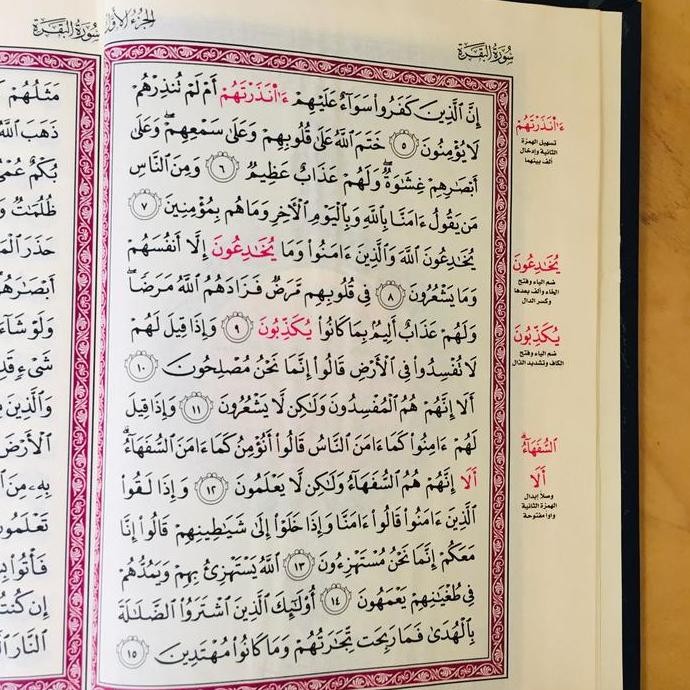 سُورَةُ البَقَرَةِ
إِنَّ ٱلَّذِينَ كَفَرُواْ سَوَآءٌ عَلَيْهِمْ ءَا۬نذَرْتَهُمْ أَمْ لَمْ تُنذِرْهُمْ
لَا يُؤْمِنُونَ ٥ خَتَمَ ٱللَّهُ عَلَىٰ قُلُوبِهِمْ وَعَلَىٰ سَمْعِهِمْ ۖ وَعَلَىٰ
أَبْصَٰرِهِمْ غِشَٰوَةٌ ۖ وَلَهُمْ عَذَابٌ عَظِيمٌ ٦ وَمِنَ ٱلنَّاسِ
مَن يَقُولُ ءَامَنَّا بِٱللَّهِ وَبِٱلْيَوْمِ ٱلْأٓخِرِ وَمَا هُم بِمُؤْمِنِينَ ٧
يُخَٰدِعُونَ ٱللَّهَ وَٱلَّذِينَ ءَامَنُواْ وَمَا يُخَٰدِعُونَ إِلَّا أَنفُسَهُمْ
وَمَا يَشْعُرُونَ ٨ فِى قُلُوبِهِم مَّرَضٌ فَزَادَهُمُ ٱللَّهُ مَرَضًا ۖ
وَلَهُمْ عَذَابٌ أَلِيمٌۢ بِمَا كَانُواْ يُكَذِّبُونَ ٩ وَإِذَا قِيلَ لَهُمْ
لَا تُفْسِدُواْ فِى ٱلْأَرْضِ قَالُوٓاْ إِنَّمَا نَحْنُ مُصْلِحُونَ ١٠
أَلَآ إِنَّهُمْ هُمُ ٱلْمُفْسِدُونَ وَلَٰكِن لَّا يَشْعُرُونَ ١١ وَإِذَا قِيلَ
لَهُمْ ءَامِنُواْ كَمَآ ءَامَنَ ٱلنَّاسُ قَالُوٓاْ أَنُؤْمِنُ كَمَآ ءَامَنَ ٱلسُّفَهَآءُ ۗ
أَلَآ إِنَّهُمْ هُمُ ٱلسُّفَهَآءُ وَلَٰكِن لَّا يَعْلَمُونَ ١٢ وَإِذَا لَقُواْ
ٱلَّذِينَ ءَامَنُواْ قَالُوٓاْ ءَامَنَّا وَإِذَا خَلَوْاْ إِلَىٰ شَيَٰطِينِهِمْ قَالُوٓاْ إِنَّا
مَعَكُمْ إِنَّمَا نَحْنُ مُسْتَهْزِءُونَ ١٣ ٱللَّهُ يَسْتَهْزِئُ بِهِمْ وَيَمُدُّهُمْ
فِى طُغْيَٰنِهِمْ يَعْمَهُونَ ١٤ أُوْلَٰٓئِكَ ٱلَّذِينَ ٱشْتَرَوُاْ ٱلضَّلَٰلَةَ
بِٱلْهُدَىٰ فَمَا رَبِحَت تِّجَٰرَتُهُمْ وَمَا كَانُواْ مُهْتَدِينَ ١٥
ءَا۬نذَرْتَهُمْ
تسهيل الهمزة
الثانية وإدخال
ألف بينهما
يُخَٰدِعُونَ
ضم الياء وفتح
الخاء وألف بعدها
وكسر الدال
يُكَذِّبُونَ
ضم الياء وفتح
الكاف وتشديد الذال
ٱلسُّفَهَآءُ ۗ
أَلَآ
وصلا إبدال
الهمزة الثانية
واوا مفتوحة
الجُزْءُ الأَوَّلُ
سُورَةُ البَقَرَةِ
مَثَلُهُمْ
ذَهَبَ ٱللَّهُ
بُكْمٌ عُمْىٌ
ظُلُمَٰتٌ
حَذَرَ ٱلْمَ
أَبْصَٰرَهُ
وَلَوْ شَآءَ
شَىْءٍ قَدِ
وَٱلَّذِينَ
ٱلْأَرْضَ
بِهِۦ مِنَ
تَعْلَمُونَ
فَأْتُواْ بِ
إِن كُنتُ
ٱلنَّارَ ٱلَّ